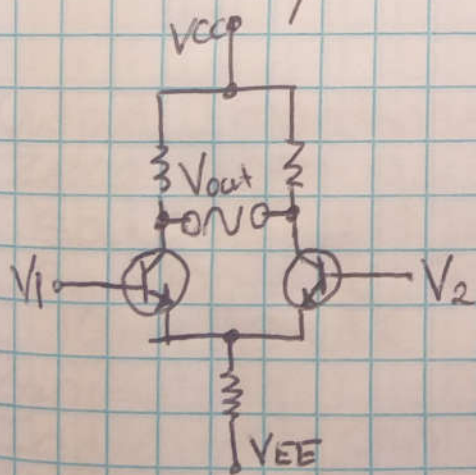 VCC
Vout
V1
V2
VEE